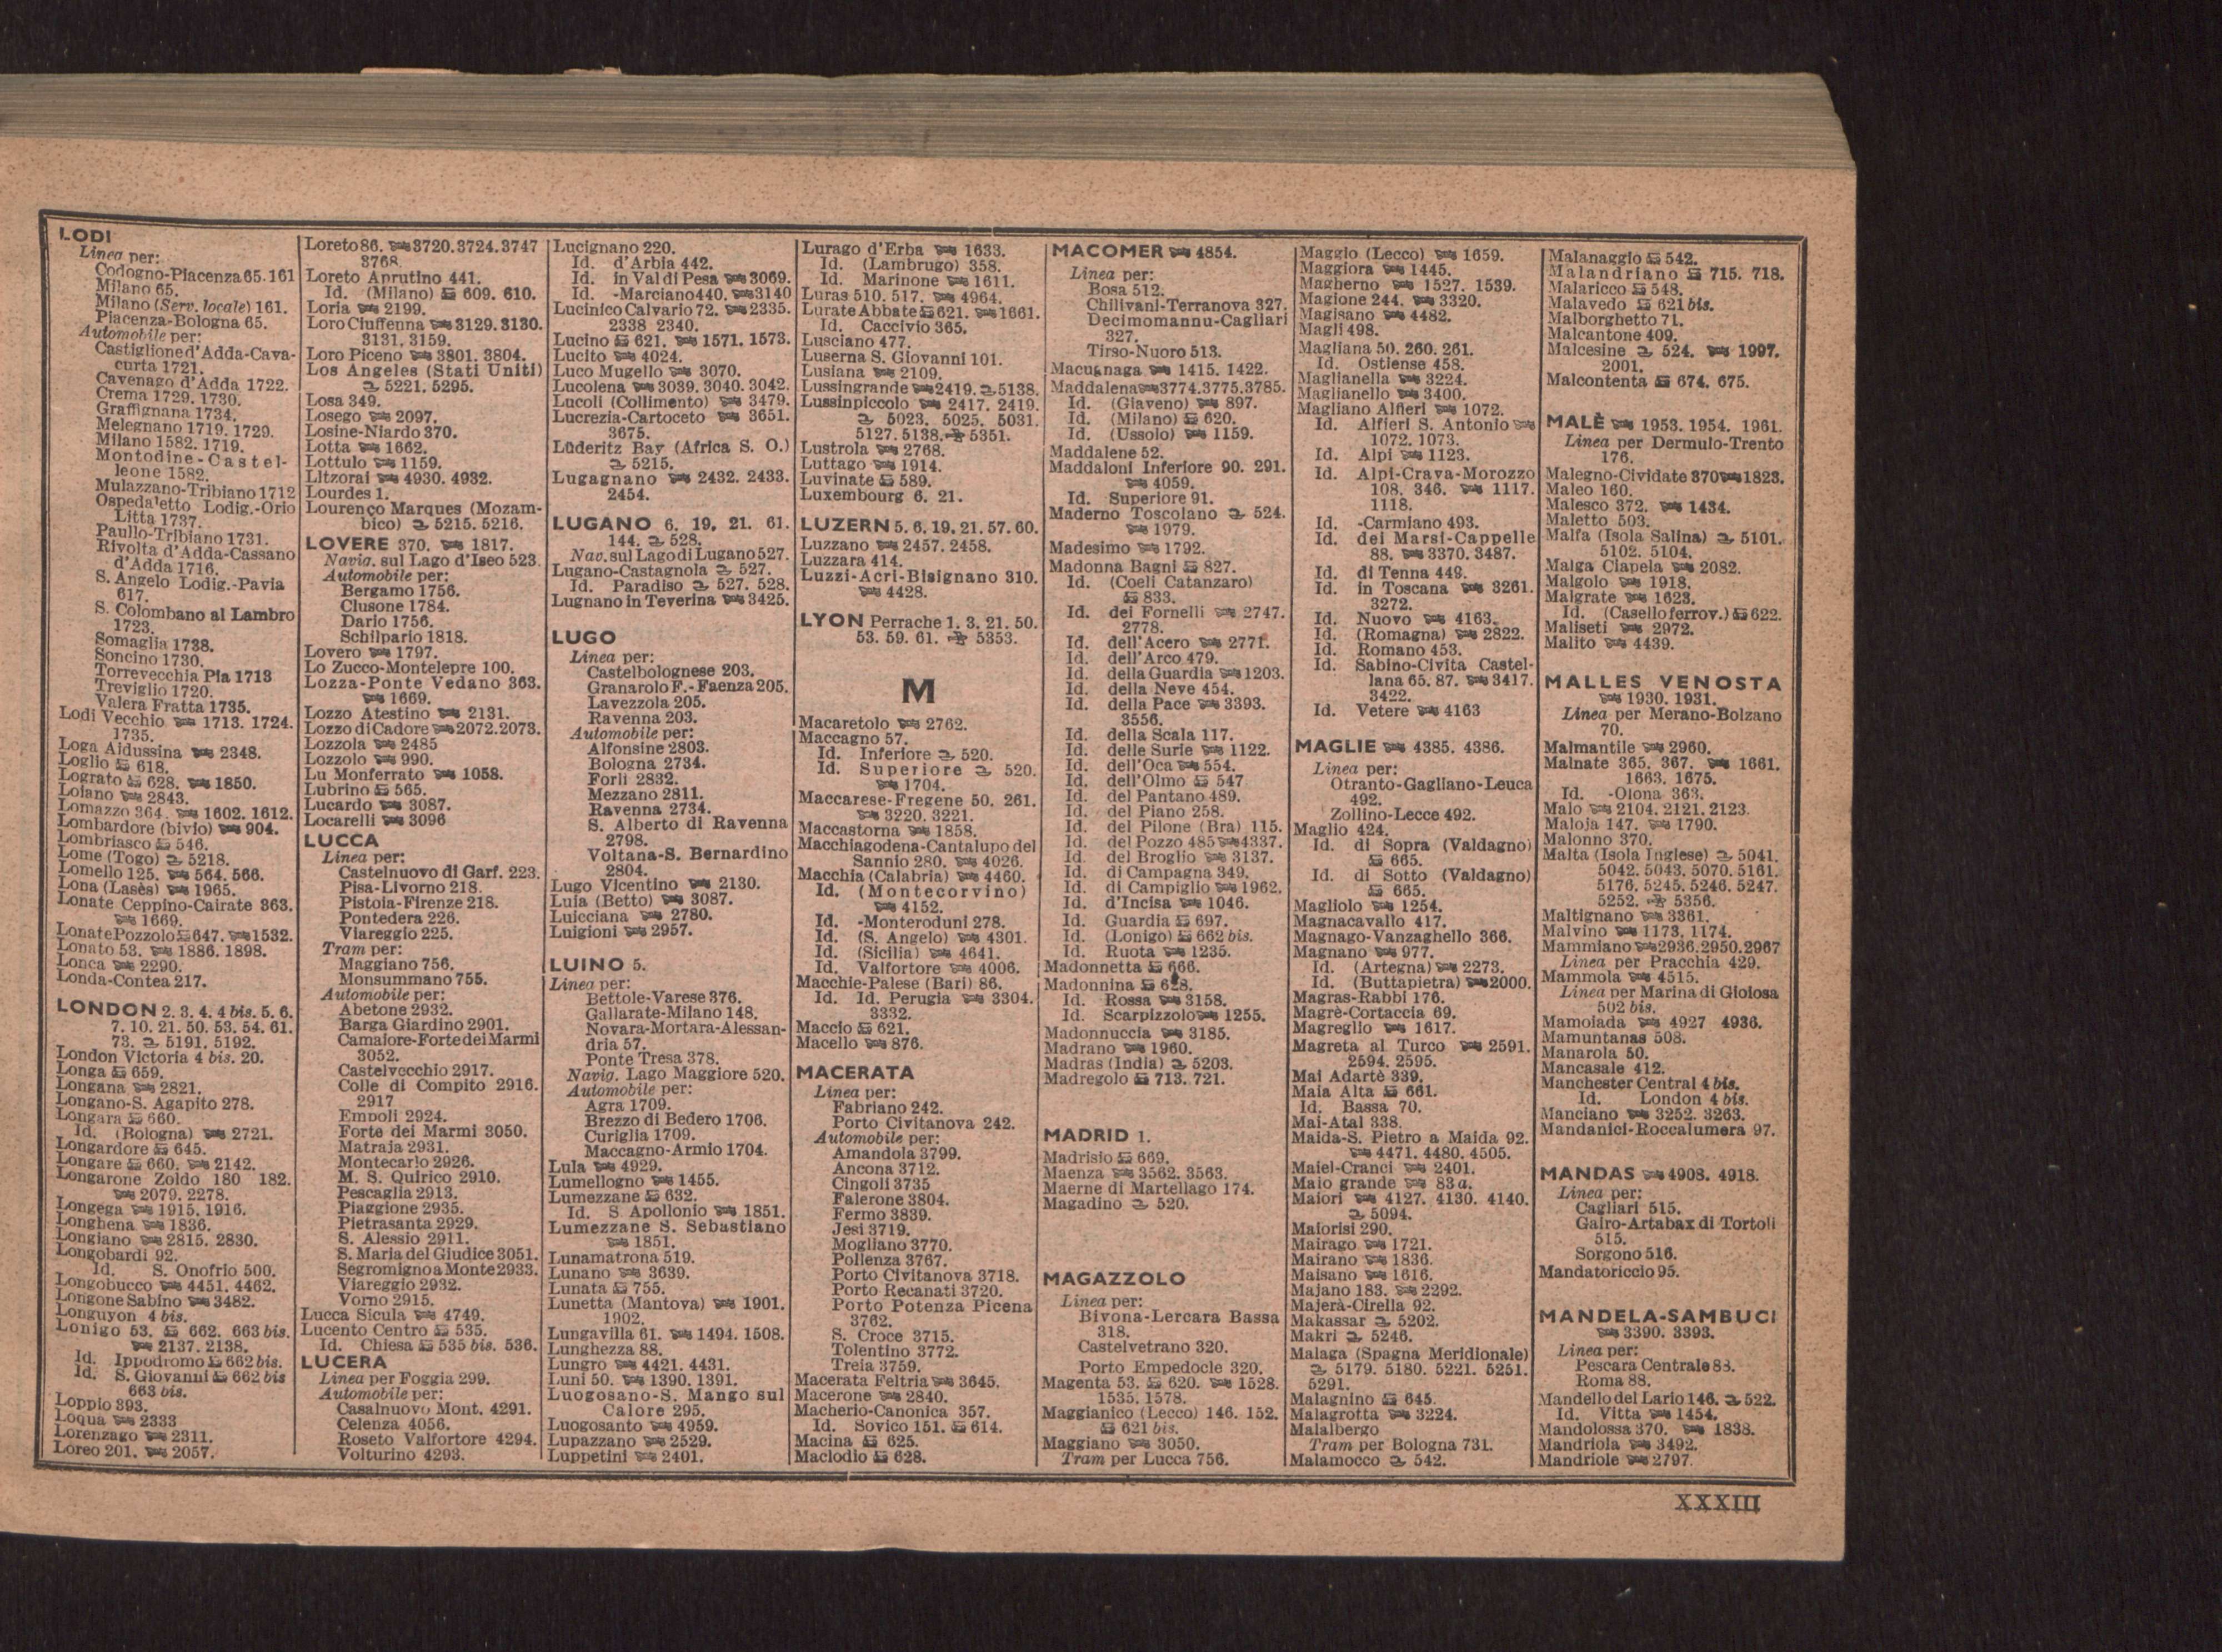 LODI
Linea per:
Codogno-Piacenza 65. 161
Milano 65.
Milano (Serv. locale) 161.
Piacenza-Bologna 65.
Automobile per:
Castiglione d'Adda-Cava-
curta 1721.
Cavenago d'Adda 1722.
Crema 1729. 1730.
Graffignana 1734.
Melegnano 1719. 1729.
Milano 1582. 1719.
Montodine-Castel-
leone 1582.
Mulazzano-Tribiano 1712
Ospedaletto Lodig.-Orio
Litta 1737.
Paullo-Tribiano 1731.
Rivolta d'Adda-Cassano
d'Adda 1716.
S. Angelo Lodig.-Pavia
617.
S. Colombano al Lambro
1723.
Somaglia 1738.
Soncino 1730.
Torrevecchia Pia 1713
Treviglio 1720.
Valera Fratta 1735.
Lodi Vecchio 1713. 1724.
1735.
Loga Aidussina 2348.
Loglio 618.
Lograto 628. 1850.
Loiano 2843.
Lomazzo 364. 1602. 1612.
Lombardore (bivio) 904.
Lombriasco 546.
Lome (Togo) 5218.
Lomello 125. 564. 566.
Lona (Lasès) 1965.
Lonate Ceppino-Cairate 363.
1669.
Lonate Pozzolo 647. 1532.
Lonato 53. 1886. 1898.
Lonca 2290.
Londa-Contea 217.
LONDON 2. 3. 4. 4 bis. 5. 6.
7. 10. 21. 50. 53. 54. 61.
73. 5191. 5192.
London Victoria 4 bis. 20.
Longa 659.
Longana 2821.
Longano-S. Agapito 278.
Longara 660.
Id. (Bologna) 2721.
Longardore 645.
Longare 660. 2142.
Longarone Zoldo 180 182.
2079. 2278.
Longega 1915. 1916.
Longhena 1836.
Longiano 2815. 2830.
Longobardi 92.
Id. S. Onofrio 500.
Longobucco 4451. 4462.
Longone Sabino 3482.
Longuyon 4 bis.
Lonigo 53. 662. 663 bis.
2137. 2138.
Id. Ippodromo 662 bis.
Id. S. Giovanni 662 bis
663 bis.
Loppio 393.
Loqua 2333
Lorenzago 2311.
Loreo 201. 2057.
Loreto 86. 3720. 3724. 3747
3768.
Loreto Aprutino 441.
Id. (Milano) 609. 610.
Loria 2199.
Loro Ciuffenna 3129. 3130.
3131. 3159.
Loro Piceno 3801. 3804.
Los Angeles (Stati Uniti)
5221. 5295.
Losa 349.
Losego 2097.
Losine-Niardo 370.
Lotta 1662.
Lottulo 1159.
Lotzorai 4930. 4932.
Lourdes 1.
Lourenço Marques (Mozam-
bico) 5215. 5216.
LOVERE 370. 1817.
Navig. sul Lago d'Iseo 523.
Automobile per:
Bergamo 1756.
Clusone 1784.
Dario 1756.
Schilpario 1818.
Lovero 1797.
Lo Zucco-Montelepre 100.
Lozza-Ponte Vedano 363.
1669.
Lozzo Atestino 2131.
Lozzo di Cadore 2072. 2073.
Lozzola 2485
Lozzolo 990.
Lu Monferrato 1058.
Lubrino 565.
Lucardo 3087.
Locarelli 3096
LUCCA
Linea per:
Castelnuovo di Garf. 223.
Pisa-Livorno 218.
Pistoia-Firenze 218.
Pontedera 226.
Viareggio 225.
Tram per:
Maggiano 756.
Monsummano 755.
Automobile per:
Abetone 2932.
Barga Giardino 2901.
Camaiore-Forte dei Marmi
3052.
Castelvecchio 2917.
Colle di Compito 2916.
2917
Empoli 2924.
Forte dei Marmi 3050.
Matraja 2931.
Montecarlo 2926.
M. S. Quirico 2910.
Pescaglia 2913.
Piaggione 2935.
Pietrasanta 2929.
S. Alessio 2911.
S. Maria del Giudice 3051.
Segromigno a Monte 2933.
Viareggio 2932.
Vorno 2915.
Lucca Sicula 4749.
Lucento Centro 535.
Id. Chiesa 535 bis. 536.
LUCERA
Linea per Foggia 299.
Automobile per:
Casalnuovo Mont. 4291.
Celenza 4056.
Roseto Valfortore 4294.
Volturino 4293.
Lucignano 220.
Id. d'Arbia 442.
Id. in Val di Pesa 3069.
Id. -Marciano 440. 3140
Lucinico Calvario 72. 2335.
2338 2340.
Lucino 621. 1571. 1573.
Lucito 4024.
Luco Mugello 3070.
Lucolena 3039. 3040. 3042.
Lucoli (Collimento) 3479.
Lucrezia-Cartoceto 3651.
3675.
Lüderitz Bay (Africa S. O.)
5215.
Lugagnano 2432. 2433.
2454.
LUGANO 6. 19. 21. 61.
144. 528.
Nav. sul Lago di Lugano 527.
Lugano-Castagnola 527.
Id. Paradiso 527. 528.
Lugnano in Teverina 3425.
LUGO
Linea per:
Castelbolognese 203.
Granarolo F.-Faenza 205.
Lavezzola 205.
Ravenna 203.
Automobile per:
Alfonsine 2803.
Bologna 2734.
Forlì 2832.
Mezzano 2811.
Ravenna 2734.
S. Alberto di Ravenna
2798.
Voltana-S. Bernardino
2804.
Lugo Vicentino 2130.
Luia (Betto) 3087.
Luicciana 2780.
Luigioni 2957.
LUINO 5.
Linea per:
Bettole-Varese 376.
Gallarate-Milano 148.
Novara-Mortara-Alessan-
dria 57.
Ponte Tresa 378.
Navig. Lago Maggiore 520.
Automobile per:
Agra 1709.
Brezzo di Bedero 1706.
Curiglia 1709.
Maccagno-Armio 1704.
Lula 4929.
Lumellogno 1455.
Lumezzane 632.
Id. S Apollonio 1851.
Lumezzane S. Sebastiano
1851.
Lunamatrona 519.
Lunano 3639.
Lunata 755.
Lunetta (Mantova) 1901.
1902.
Lungavilla 61. 1494. 1508.
Lunghezza 88.
Lungro 4421. 4431.
Luni 50. 1390. 1391.
Luogosano-S. Mango sul
Calore 295.
Luogosanto 4959.
Lupazzano 2529.
Luppetini 2401.
Lurago d'Erba 1633.
Id. (Lambrugo) 358.
Id. Marinone 1611.
Luras 510. 517. 4964.
Lurate Abbate 621. 1661.
Id. Caccivio 365.
Lusciano 477.
Luserna S. Giovanni 101.
Lusiana 2109.
Lussingrande 2419. 5138.
Lussinpiccolo 2417. 2419.
5023. 5025. 5031.
5127. 5138. 5351.
Lustrola 2768.
Luttago 1914.
Luvinate 589.
Luxembourg 6. 21.
LUZERN 5. 6. 19. 21. 57. 60.
Luzzano 2457. 2458.
Luzzara 414.
Luzzi-Acri-Bisignano 310.
4428.
LYON Perrache 1. 3. 21. 50.
53. 59. 61. 5353.
M
Macaretolo 2762.
Maccagno 57.
Id. Inferiore 520.
Id. Superiore 520.
1704.
Maccarese-Fregene 50. 261.
3220. 3221.
Maccastorna 1858.
Macchiagodena-Cantalupo del
Sannio 280. 4026.
Macchia (Calabria) 4460.
Id. (Montecorvino)
4152.
Id. -Monteroduni 278.
Id. (S. Angelo) 4301.
Id. (Sicilia) 4641.
Id. Valfortore 4006.
Macchie-Palese (Bari) 86.
Id. Id. Perugia 3304.
3332.
Maccio 621.
Macello 876.
MACERATA
Linea per:
Fabriano 242.
Porto Civitanova 242.
Automobile per:
Amandola 3799.
Ancona 3712.
Cingoli 3735
Falerone 3804.
Fermo 3839.
Jesi 3719.
Mogliano 3770.
Pollenza 3767.
Porto Civitanova 3718.
Porto Recanati 3720.
Porto Potenza Picena
3762.
S. Croce 3715.
Tolentino 3772.
Treia 3759.
Macerata Feltria 3645.
Macerone 2840.
Macherio-Canonica 357.
Id. Sovico 151. 614.
Macina 625.
Maclodio 628.
MACOMER 4854.
Linea per:
Bosa 512.
Chilivani-Terranova 327.
Decimomannu-Cagliari
327.
Tirso-Nuoro 513.
Macugnaga 1415. 1422.
Maddalena 3774. 3775. 3785.
Id. (Giaveno) 897.
Id. (Milano) 620.
Id. (Ussolo) 1159.
Maddalene 52.
Maddaloni Inferiore 90. 291.
4059.
Id. Superiore 91.
Maderno Toscolano 524.
1979.
Madesimo 1792.
Madonna Bagni 827.
Id. (Coeli Catanzaro)
833.
Id. dei Fornelli 2747.
2778.
Id. dell'Acero 2771.
Id. dell'Arco 479.
Id. della Guardia 1203.
Id. della Neve 454.
Id. della Pace 3393.
3556.
Id. della Scala 117.
Id. delle Surie 1122.
Id. dell'Oca 554.
Id. dell'Olmo 547
Id. del Pantano 489.
Id. del Piano 258.
Id. del Pilone (Bra) 115.
Id. del Pozzo 485 4337.
Id. del Broglio 3137.
Id. di Campagna 349.
Id. di Campiglio 1962.
Id. d'Incisa 1046.
Id. Guardia 697.
Id. (Lonigo) 662 bis.
Id. Ruota 1235.
Madonnetta 666.
Madonnina 628.
Id. Rossa 3158.
Id. Scarpizzolo 1255.
Madonnuccia 3185.
Madrano 1960.
Madras (India) 5203.
Madregolo 713. 721.
MADRID 1.
Madrisio 669.
Maenza 3562. 3563.
Maerne di Martellago 174.
Magadino 520.
MAGAZZOLO
Linea per:
Bivona-Lercara Bassa
318.
Castelvetrano 320.
Porto Empedocle 320.
Magenta 53. 620. 1528.
1535. 1578.
Maggianico (Lecco) 146. 152.
621 bis.
Maggiano 3050.
Tram per Lucca 756.
Maggio (Lecco) 1659.
Maggiora 1445.
Magherno 1527. 1539.
Magione 244. 3320.
Magisano 4482.
Magli 498.
Magliana 50. 260. 261.
Id. Ostiense 458.
Maglianella 3224.
Maglianello 3400.
Magliano Alfieri 1072.
Id. Alfieri S. Antonio
1072. 1073.
Id. Alpi 1123.
Id. Alpi-Crava-Morozzo
108. 346. 1117.
1118.
Id. -Carmiano 493.
Id. dei Marsi-Cappelle
88. 3370. 3487.
Id. di Tenna 449.
Id. in Toscana 3261.
3272.
Id. Nuovo 4163.
Id. (Romagna) 2822.
Id. Romano 453.
Id. Sabino-Civita Castel-
lana 65. 87. 3417.
3422.
Id. Vetere 4163
MAGLIE 4385. 4386.
Linea per:
Otranto-Gagliano-Leuca
492.
Zollino-Lecce 492.
Maglio 424.
Id. di Sopra (Valdagno)
665.
Id. di Sotto (Valdagno)
665.
Magliolo 1254.
Magnacavallo 417.
Magnago-Vanzaghello 366.
Magnano 977.
Id. (Artegna) 2273.
Id. (Buttapietra) 2000.
Magras-Rabbi 176.
Magrè-Cortaccia 69.
Magreglio 1617.
Magreta al Turco 2591.
2594. 2595.
Mai Adartè 339.
Maia Alta 661.
Id. Bassa 70.
Mai-Atal 338.
Maida-S. Pietro a Maida 92.
4471. 4480. 4505.
Maiel-Cranci 2401.
Maio grande 83 a.
Maiori 4127. 4130. 4140.
5094.
Maiorisi 290.
Mairago 1721.
Mairano 1836.
Maisano 1616.
Majano 183. 2292.
Majerà-Cirella 92.
Makassar 5202.
Makri 5246.
Malaga (Spagna Meridionale)
5179. 5180. 5221. 5251.
5291.
Malagnino 645.
Malagrotta 3224.
Malalbergo
Tram per Bologna 731.
Malamocco 542.
Malanaggio 542.
Malandriano 715. 718.
Malaricco 548.
Malavedo 621 bis.
Malborghetto 71.
Malcantone 409.
Malcesine 524. 1997.
2001.
Malcontenta 674. 675.
MALÈ 1953. 1954. 1961.
Linea per Dermulo-Trento
176.
Malegno-Cividate 370 1823.
Maleo 160.
Malesco 372. 1434.
Maletto 503.
Malfa (Isola Salina) 5101.
5102. 5104.
Malga Ciapela 2082.
Malgolo 1918.
Malgrate 1623.
Id. (Casello ferrov.) 622.
Maliseti 2972.
Malito 4439.
MALLES VENOSTA
1930. 1931.
Linea per Merano-Bolzano
70.
Malmantile 2960.
Malnate 365. 367. 1661.
1663. 1675.
Id. -Olona 363.
Malo 2104. 2121. 2123.
Maloja 147. 1790.
Malonno 370.
Malta (Isola Inglese) 5041.
5042. 5043. 5070. 5161.
5176. 5245. 5246. 5247.
5252. 5356.
Maltignano 3361.
Malvino 1173. 1174.
Mammiano 2936. 2950. 2967
Linea per Pracchia 429.
Mammola 4515.
Linea per Marina di Gioiosa
502 bis.
Mamoiada 4927 4936.
Mamuntanas 508.
Manarola 50.
Mancasale 412.
Manchester Central 4 bis.
Id. London 4 bis.
Manciano 3252. 3263.
Mandanici-Roccalumera 97.
MANDAS 4908. 4918.
Linea per:
Cagliari 515.
Gairo-Artabax di Tortoli
515.
Sorgono 516.
Mandatoriccio 95.
MANDELA-SAMBUCI
3390. 3393.
Linea per:
Pescara Centrale 88.
Roma 88.
Mandello del Lario 146. 522.
Id. Vitta 1454.
Mandolossa 370. 1838.
Mandriola 3492.
Mandriole 2797.
XXXIII